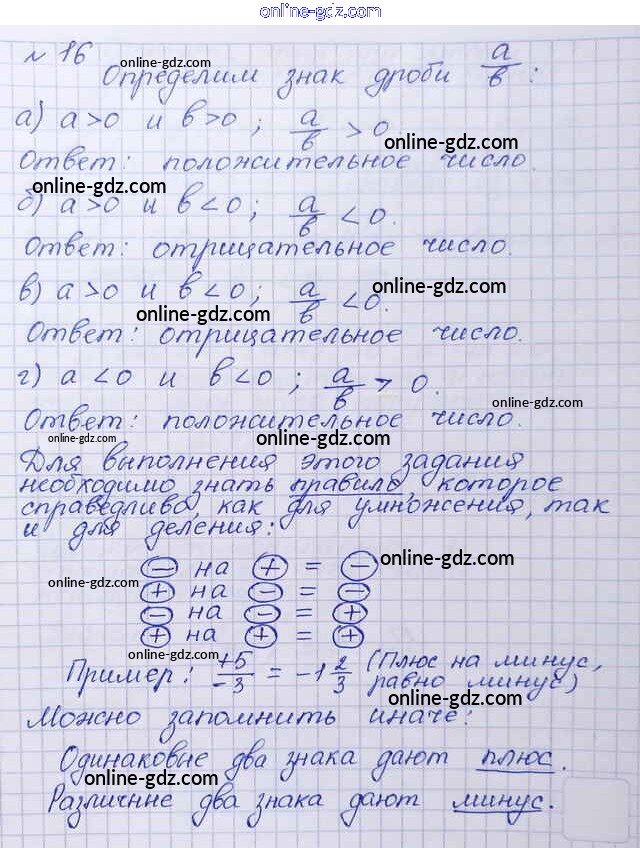 online-gdz.com
№ 16 online-gdz.com
Определим знак дроби a/в :
а) a>0 и в>0 ; a/в >0 online-gdz.com
Ответ: положительное число.
online-gdz.com
б) a>0 и в<0; a/в <0.
Ответ: отрицательное число.
в) a>0 и в<0; a/в <0. online-gdz.com
online-gdz.com
Ответ: отрицательное число.
г) a<0 и в<0 ; a/в > 0.
online-gdz.com
Ответ: положительное число.
online-gdz.com online-gdz.com
Для выполнения этого задания
необходимо знать правило, которое
справедливо, как для умножения, так
и для деления:
⊖ на ⊕ = ⊖ online-gdz.com
online-gdz.com ⊕ на ⊖ = ⊖
⊖ на ⊖ = ⊕
⊕ на ⊕ = ⊕
online-gdz.com
Пример: +5/-3 = -1 2/3 (Плюс на минус,
равно минус)
online-gdz.com
Можно запомнить иначе:
Одинаковые два знака дают плюс.
online-gdz.com online-gdz.com
Различные два знака дают минус.
online-gdz.com online-gdz.com